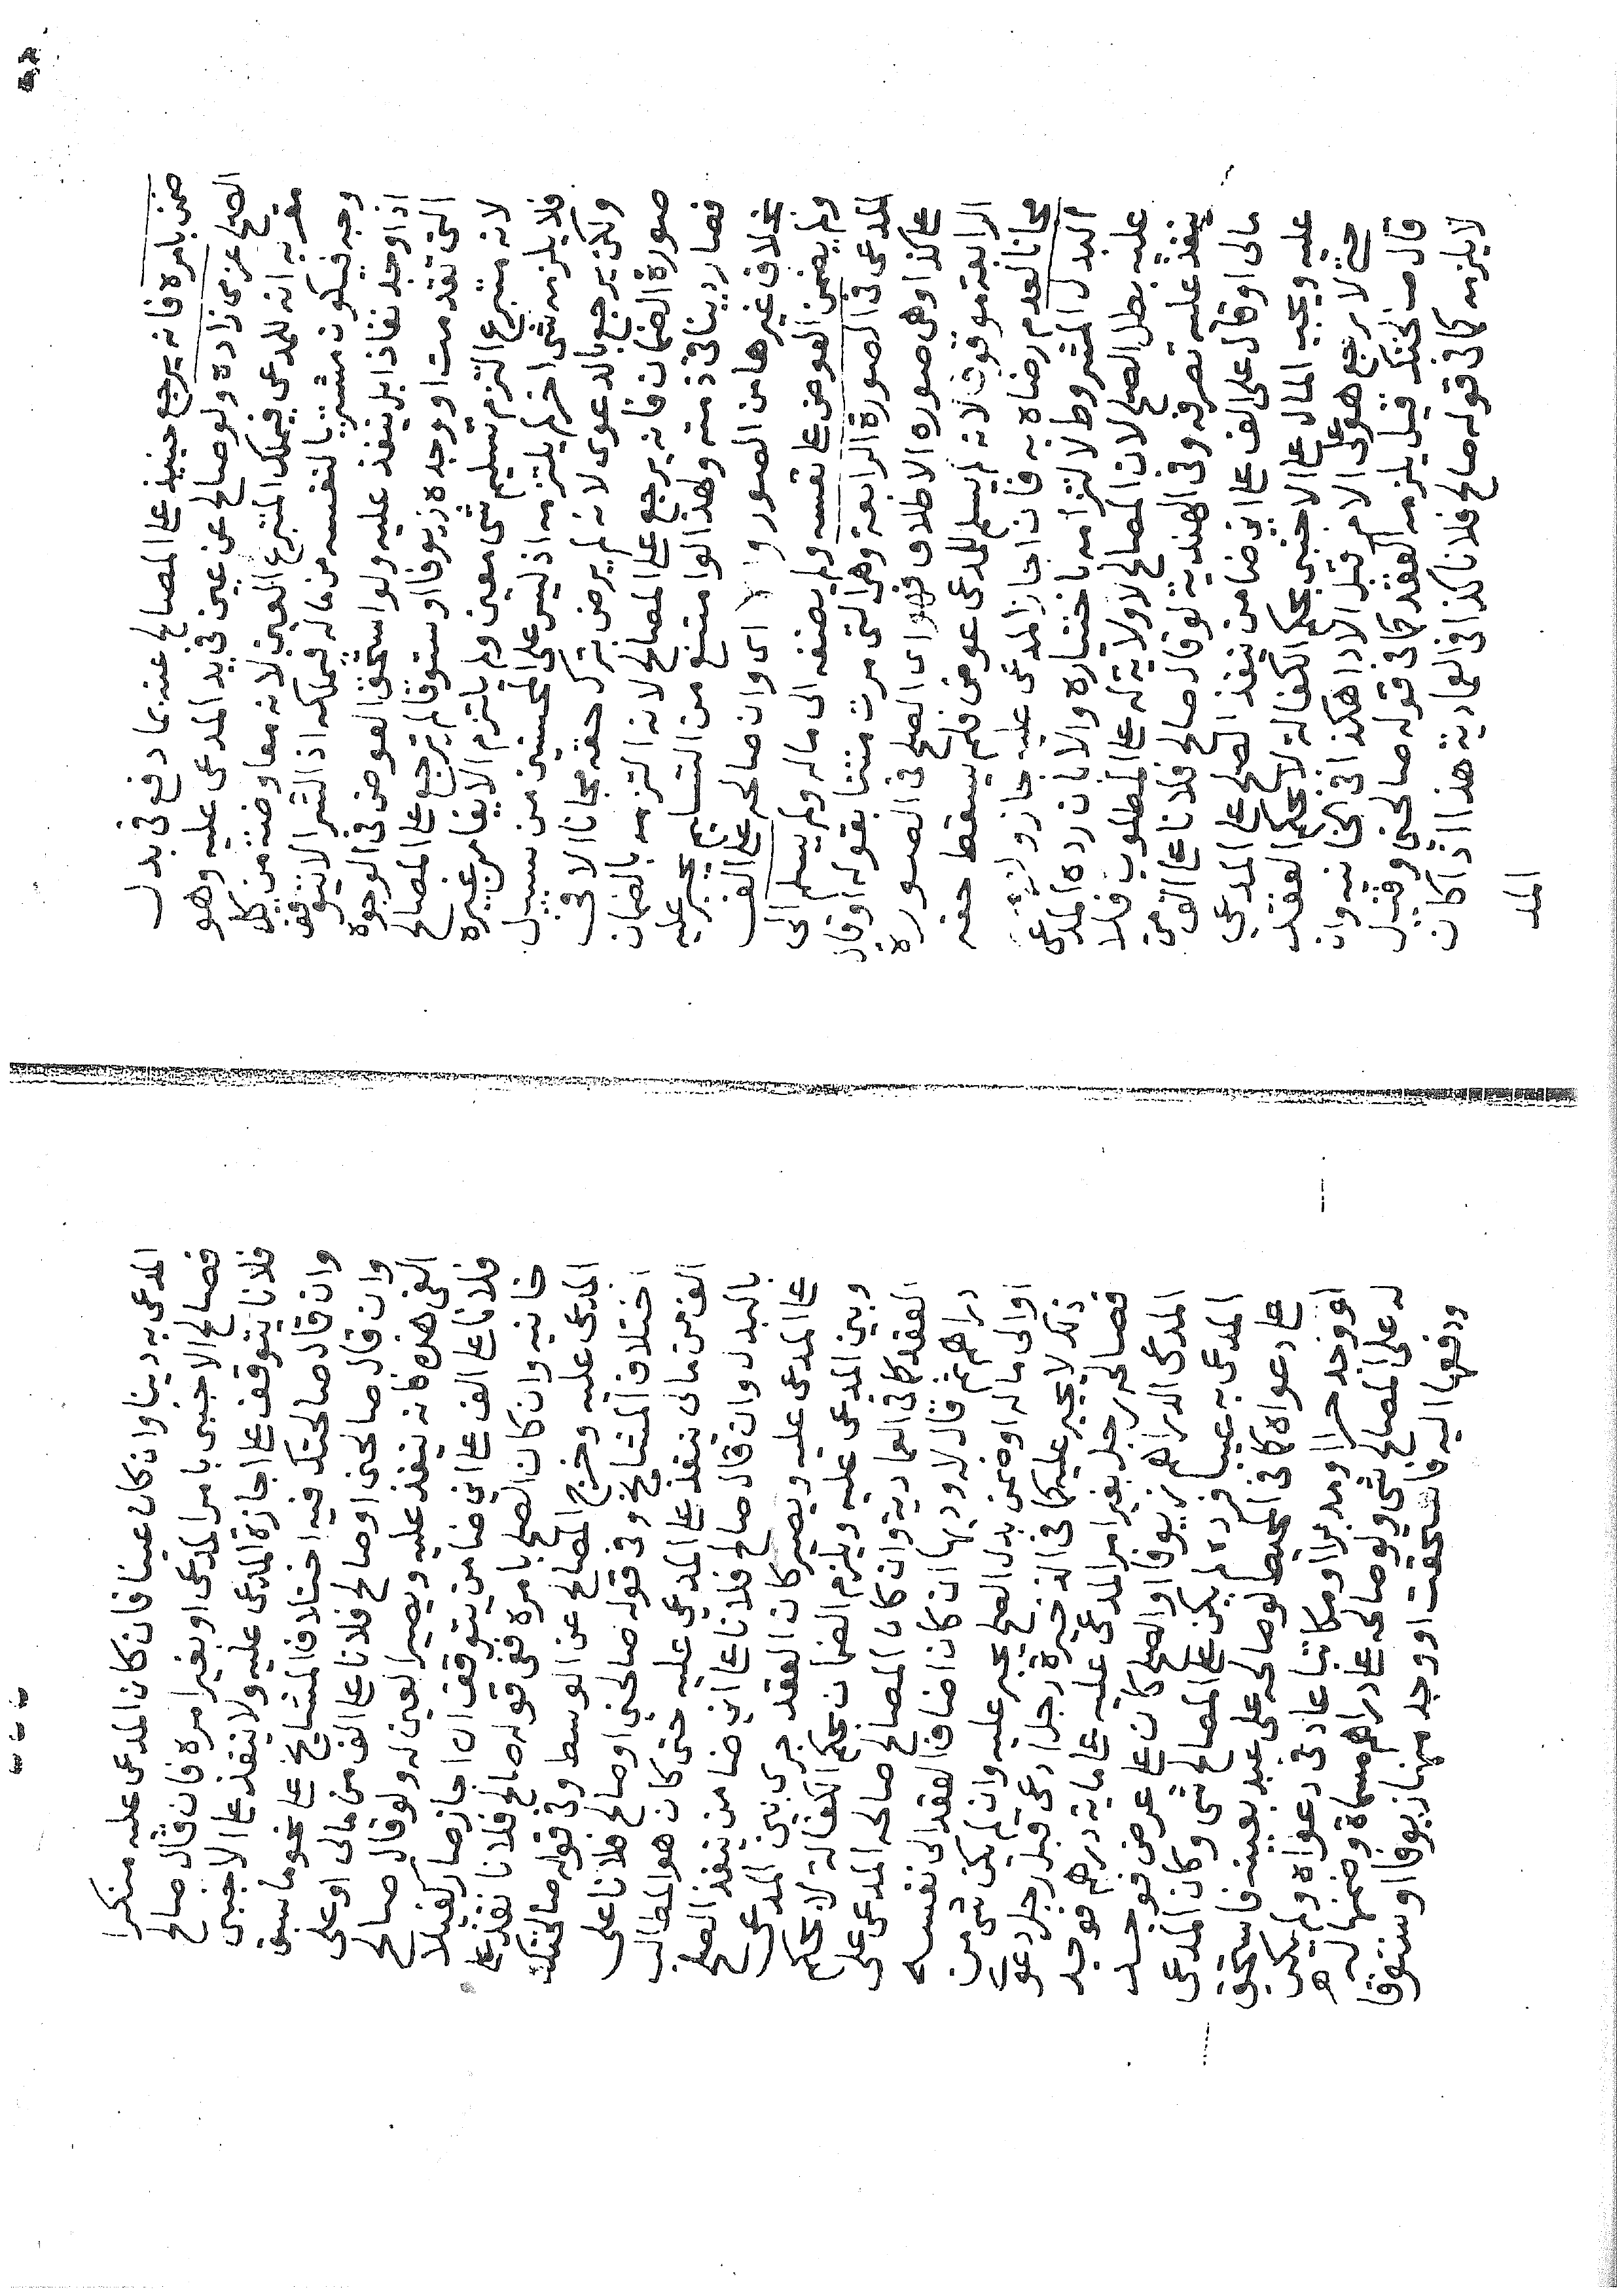 ضمن بامره فانه يرجع حينئذ على المصالح عنه بما دفع فى بدل
الصلح عزمى زاده ولو صالح عن عين فى يد المدعى عليه وهو
مقر به انه للمدعى فيملك المتبرع العين لانه معاوضة من كل
وجه فيكون مشتريا لنفسه من ماله فيملكه اذ الشرا لا يتوقف
اذا وجد نفاذا بل ينفذ عليه ولو استحق العوض فى الوجوه
التى تقدمت او وجده زيوفا او ستوقا لم يرجع على المصالح
لانه متبرع التزم تسليم شى معين ولم يلتزم الايفا من غيره
فلا يلزمه شى اخر لم يلتزمه اذ ليس على المحسنين من سبيل
ولكن يرجع بالدعوى لانه لم يرض بترك حقه مجانا الا فى
صورة الضمان فانه يرجع على المصالح لانه التزمه بالضمان
فصار دينا فى ذمته ولهذا لو امتنع من التسليم يجبر عليه
بخلاف غيرها من الصور و الا اى وان صالحه على الف
ولم يضمن العوض على نفسه ولم يضفه الى ماله ولم يسلم الى
المدعى فى الصورة الرابعة وهى التى مرت متنا بقوله او قال
على كذا وهى صورة الاطلاق فهو اى الصلح فى الصورة
الرابعة موقوف لانه لم يسلم للمدعى عوض فلم يسقط حقه
مجانا لعدم رضاه به فان اجاز المدعى عليه جاز ولزمه
البدل المشروط لالتزامه باختياره والا بان رده المدعى
عليه بطل الصلح لان المصالح لا ولاية له على المطلوب فلا
ينفذ عليه تصرفه وفى الهندية لو قال صالح فلانا على الف من
مالى او قال على الف على انى ضامن ينفذ الصلح على المدعى
عليه ويجب المال على الاجنبى بحكم الكفالة لا بحكم العقد
حتى لا يرجع هو على الامر قبل الادا هكذا فى الخانيه وان
قال صالحتك قيل يلزمه العقد كما فى قوله صالحنى وقيل
لا يلزمه كما فى قوله صالح فلانا كذا فى العمادية هذا اذا كان
المد
المدعى به دينا وان كان عينا فان كان المدعى عليه منكرا
فصالح الاجنبى بامر المدعى او بغير امره فان قال صالح
فلانا يتوقف على اجازة المدعى عليه ولا ينفذ على الاجنبى
وان قال صالحتك فيه اختلاف المشايخ على نحو ما سبق
وان قال صالحنى او صالح فلانا على الف من مالى او على
الفى هذه فانه ينفذ عليه ويصير العين له ولو قال صالح
فلانا على الف على انى ضامن يتوقف ان اجاز صار كفيلا
خانيه وان كان الصلح بامره ففى قوله صالح فلانا نفذ على
المدعى عليه وخرج المصالح عن الوسط وفى قوله صالحتك
اختلاف المشايخ وفى قوله صالحنى او صالح فلانا على
الف من مالى ينفذ على المدعى عليه حتى كان هو المطالب
بالبدل وان قال صالح فلانا على انى ضامن ينفذ الصلح
على المدعى عليه ويصير كان العقد جرى بين المدعى
وبين المدعى عليه ويلزم الضمان بحكم الكفالة لا بحكم
العقد كما فى العمادية وان كان المصالح صالحه المدعى على
دراهم ثم قال لا اوديها ان كان اضاف العقد الى نفسه
او الى ماله او ضمن بدل الصلح يجبر عليه وان لم يكن شى من
ذلك لا يجبر عليه كما فى الذخيرة رجل ادعى قبل رجل دعوى
فصالحه رجل بغير امر المدعى عليه على ماية درهم فوجد
المدعى الدراهم زيوفا او الصلح كان على عرض فوجد
المدعى به عيبا فرده لم يكن على المصالح شى وكان المدعى
على دعواه كما فى المحيط لو صالحه على عبد بعينه فاستحق
او وجد حرا او مدبرا او مكاتبا عاد فى دعواه ولم يكن
له على المصالح شى ولو صالحه على دراهم مسماة وضمنها له
ودفعها اليه فاستحقت او وجد منها زيوفا او ستوقا